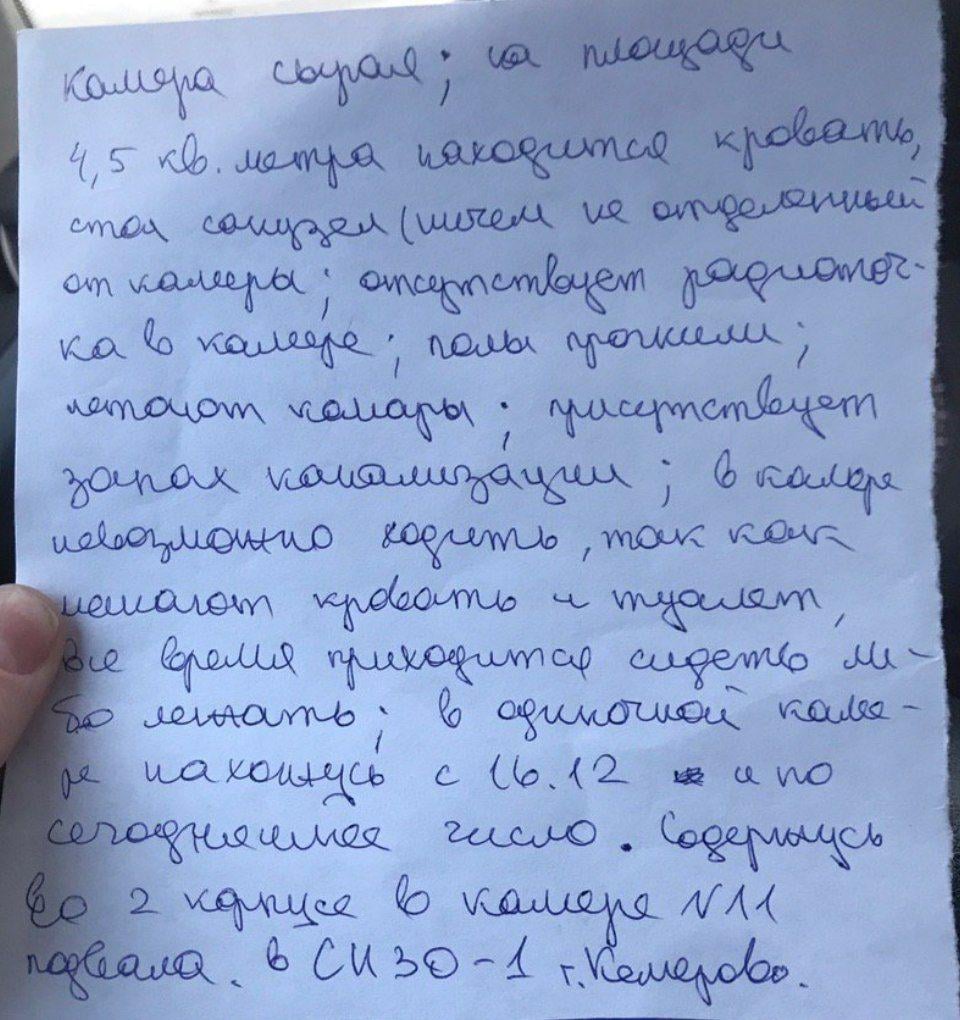 камера сырая; на площади
4,5 кв. метра находится кровать,
стол санузел (ничем не отделенный
от камеры; отсутствует радиоточ-
ка в камере; полы прогнили;
летают комары; присутствует
запах канализации; в камере
невозможно ходить, так как
мешают кровать и туалет,
все время приходится сидеть ли-
бо лежать; в одиночной каме-
ре нахожусь с 16.12 и по
сегодняшнее число. Содержусь
во 2 корпусе в камере N11
подвала. в СИЗО-1 г. Кемерово.